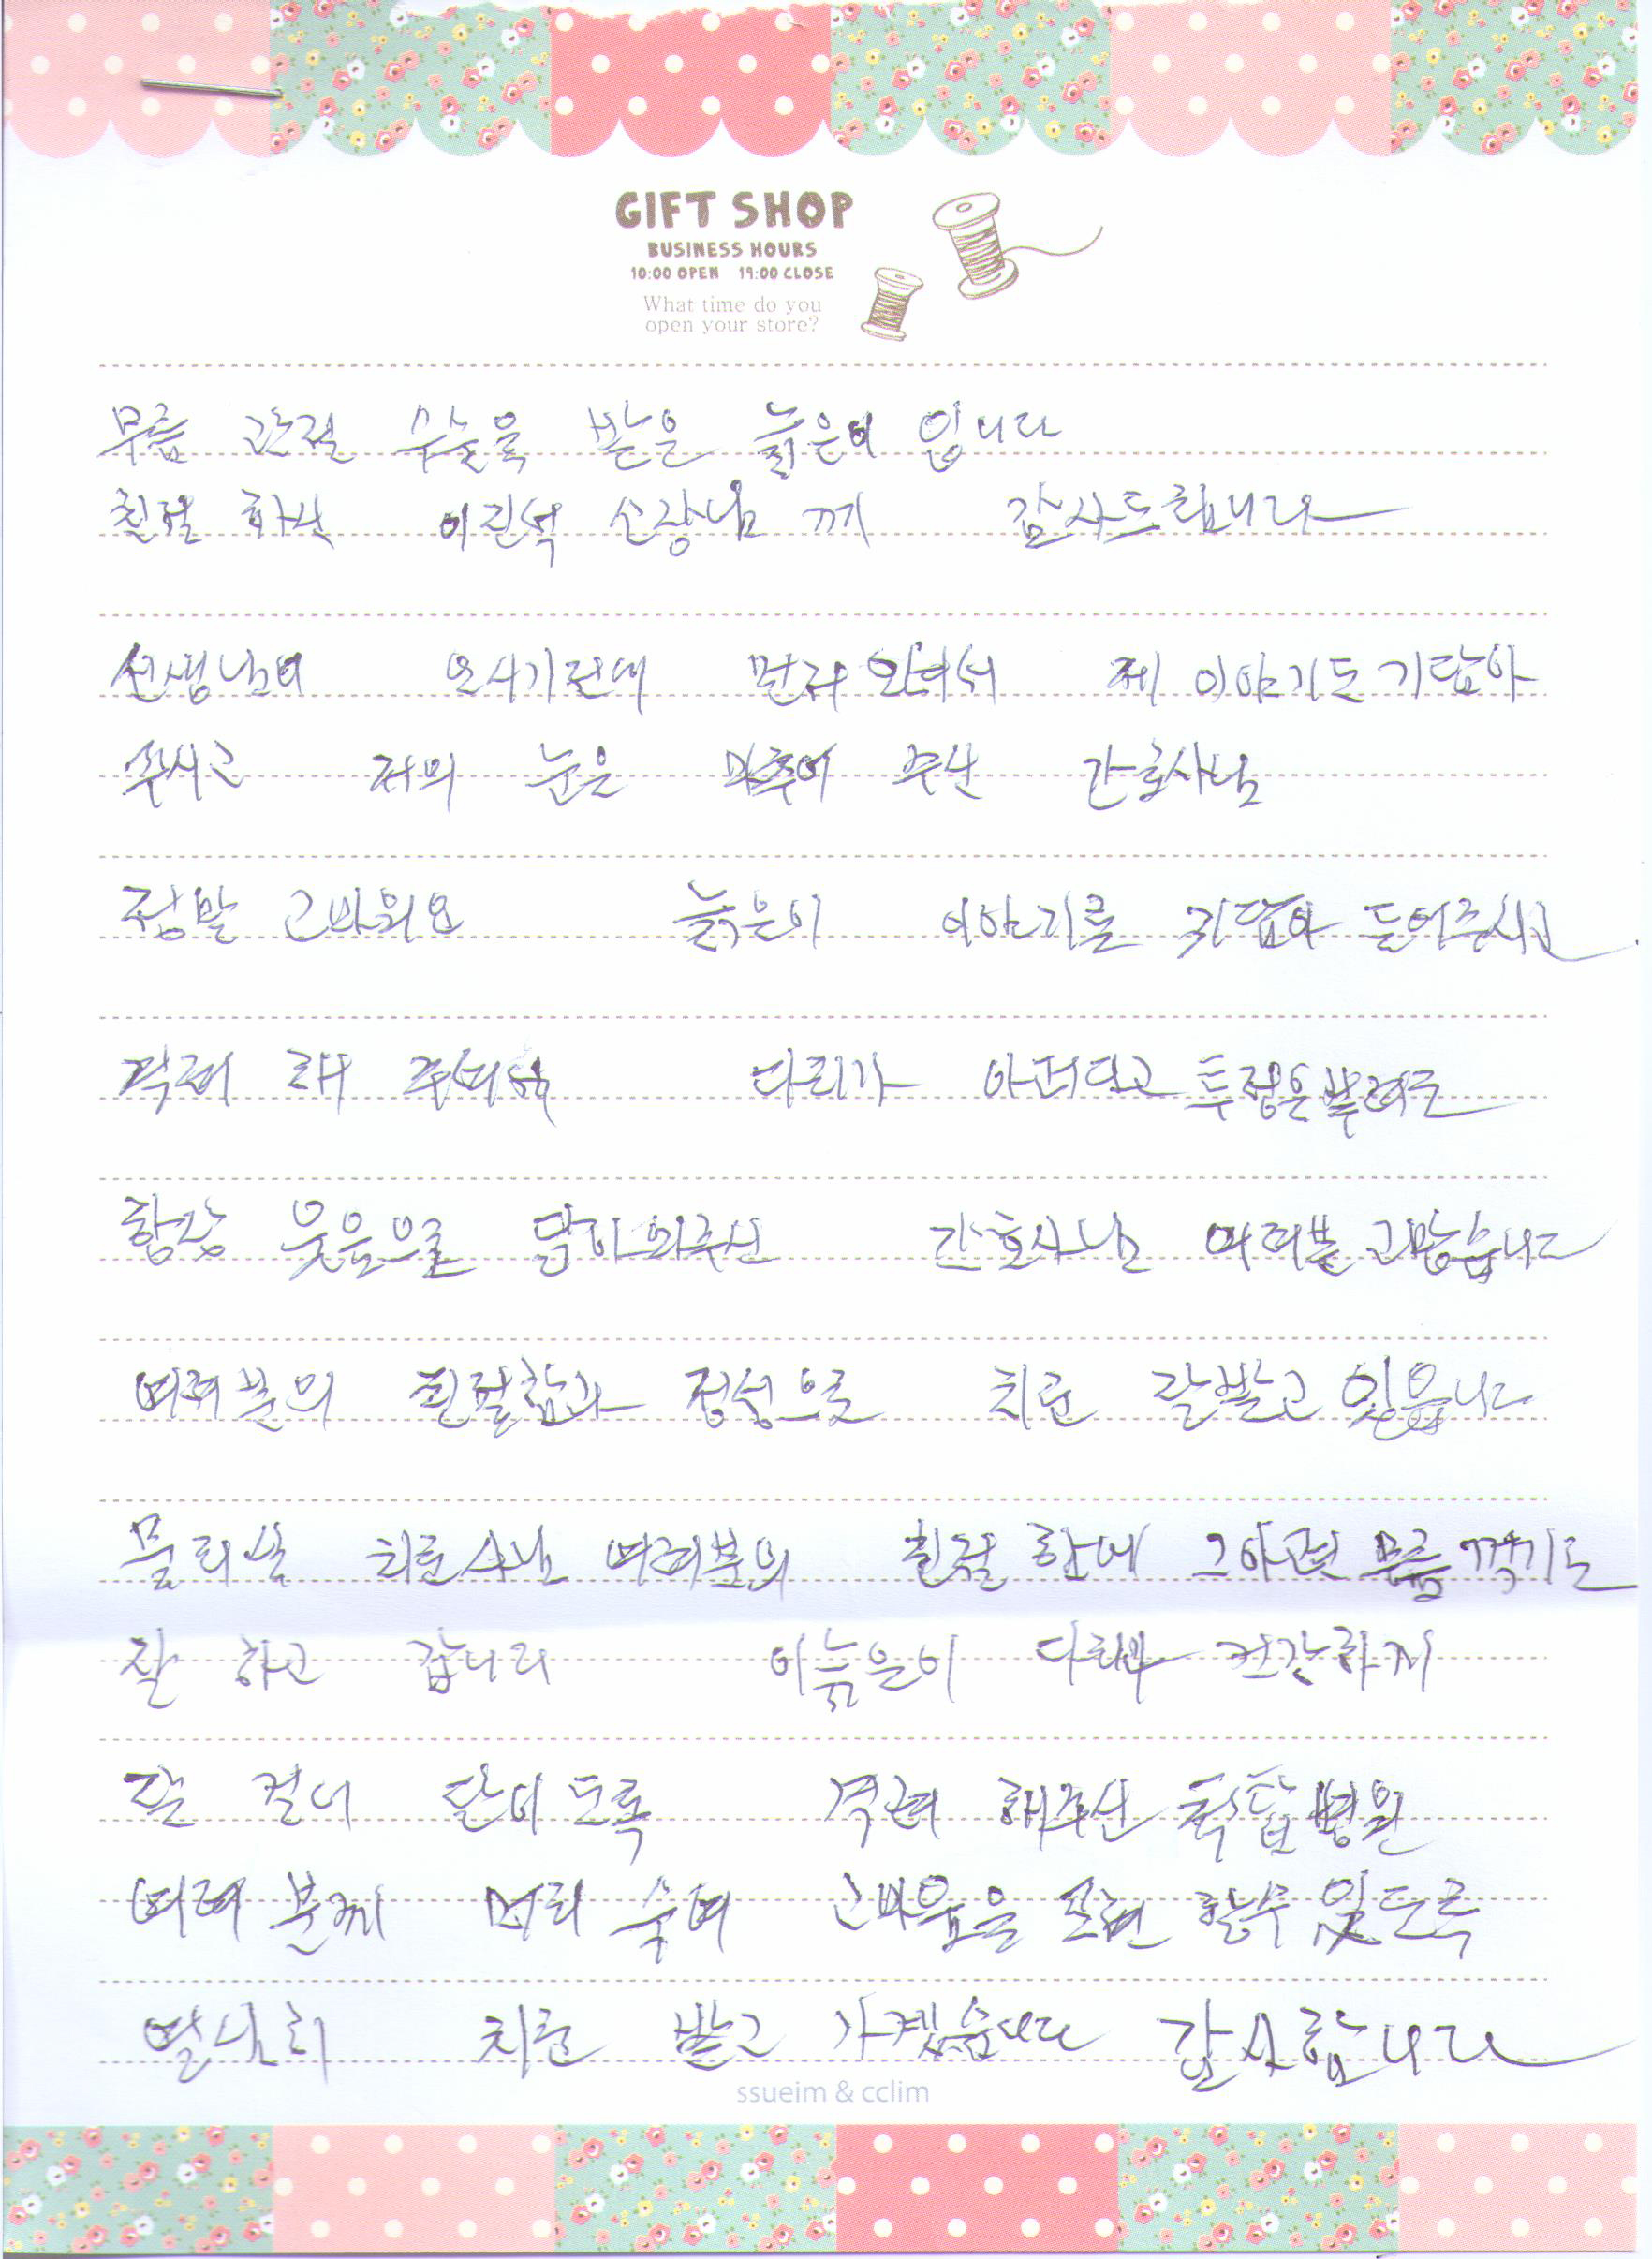 GIFT SHOP
BUSINESS HOURS
10:00 OPEN 19:00 CLOSE
What time do you
open your store?
무릎 관절 수술을 받은 늙은이 입니다
친절 하신 이진석 신장님 께 감사드립니다
선생님이 오시기전에 먼저 와서 제 이야기도 기담아
주시고 저의 눈은 마추어 주신 간호사님
정말 고마워요 늙은이 이야기를 귀담아 들어주시고
격려 해 주셔서 다리가 아퍼다고 투정은 부려도
항상 웃음으로 답하여주신 간호사님 여러분 고맙습니다
여러분의 친절함과 정성으로 치료 잘받고 있읍니다
물리실 치료사님 여러분의 친절 함에 그 무릎 꺽기도
잘 하고 갑니다 이늙은이 다리 건강하게
잘 걸어 단이도록 격려 해주신 척탑병원
여러 분께 머리 숙여 고마움을 표현 할수 있도록
열심히 치료 받고 가겠습니다 감사합니다
ssueim & cclim